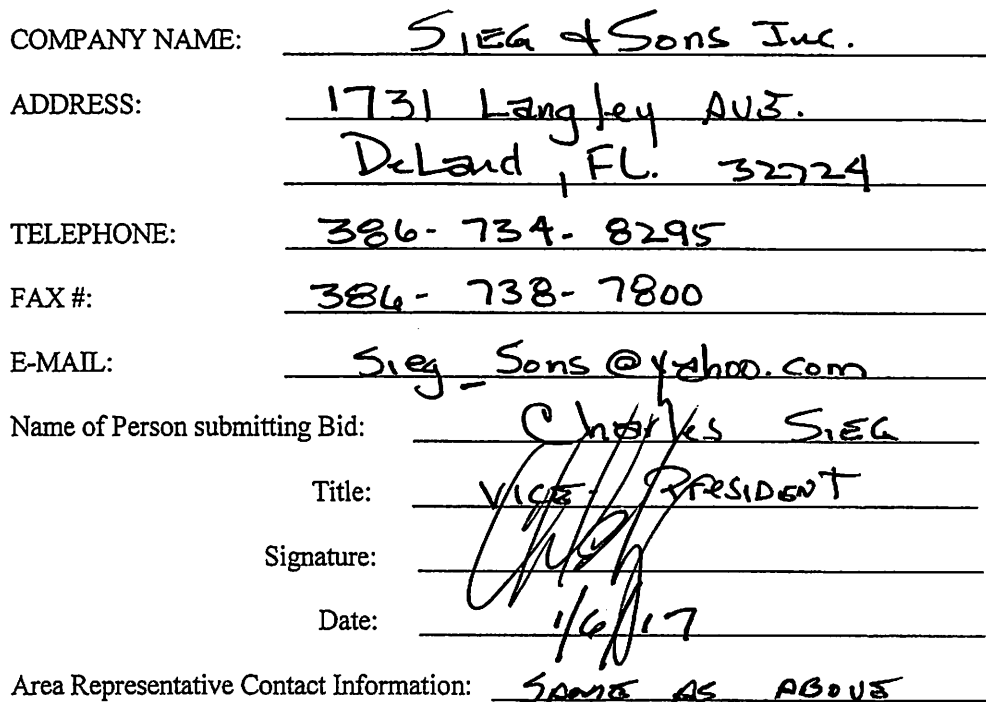 COMPANY NAME: Sieg & Sons Inc.
ADDRESS: 1731 Langley Ave.
DeLand, FL. 32724
TELEPHONE: 386-734-8295
FAX #: 386-738-7800
E-MAIL: Sieg_Sons@yahoo.com
Name of Person submitting Bid: Charles Sieg
Title: Vice-President
Signature:
Date: 1/6/17
Area Representative Contact Information: Same as above